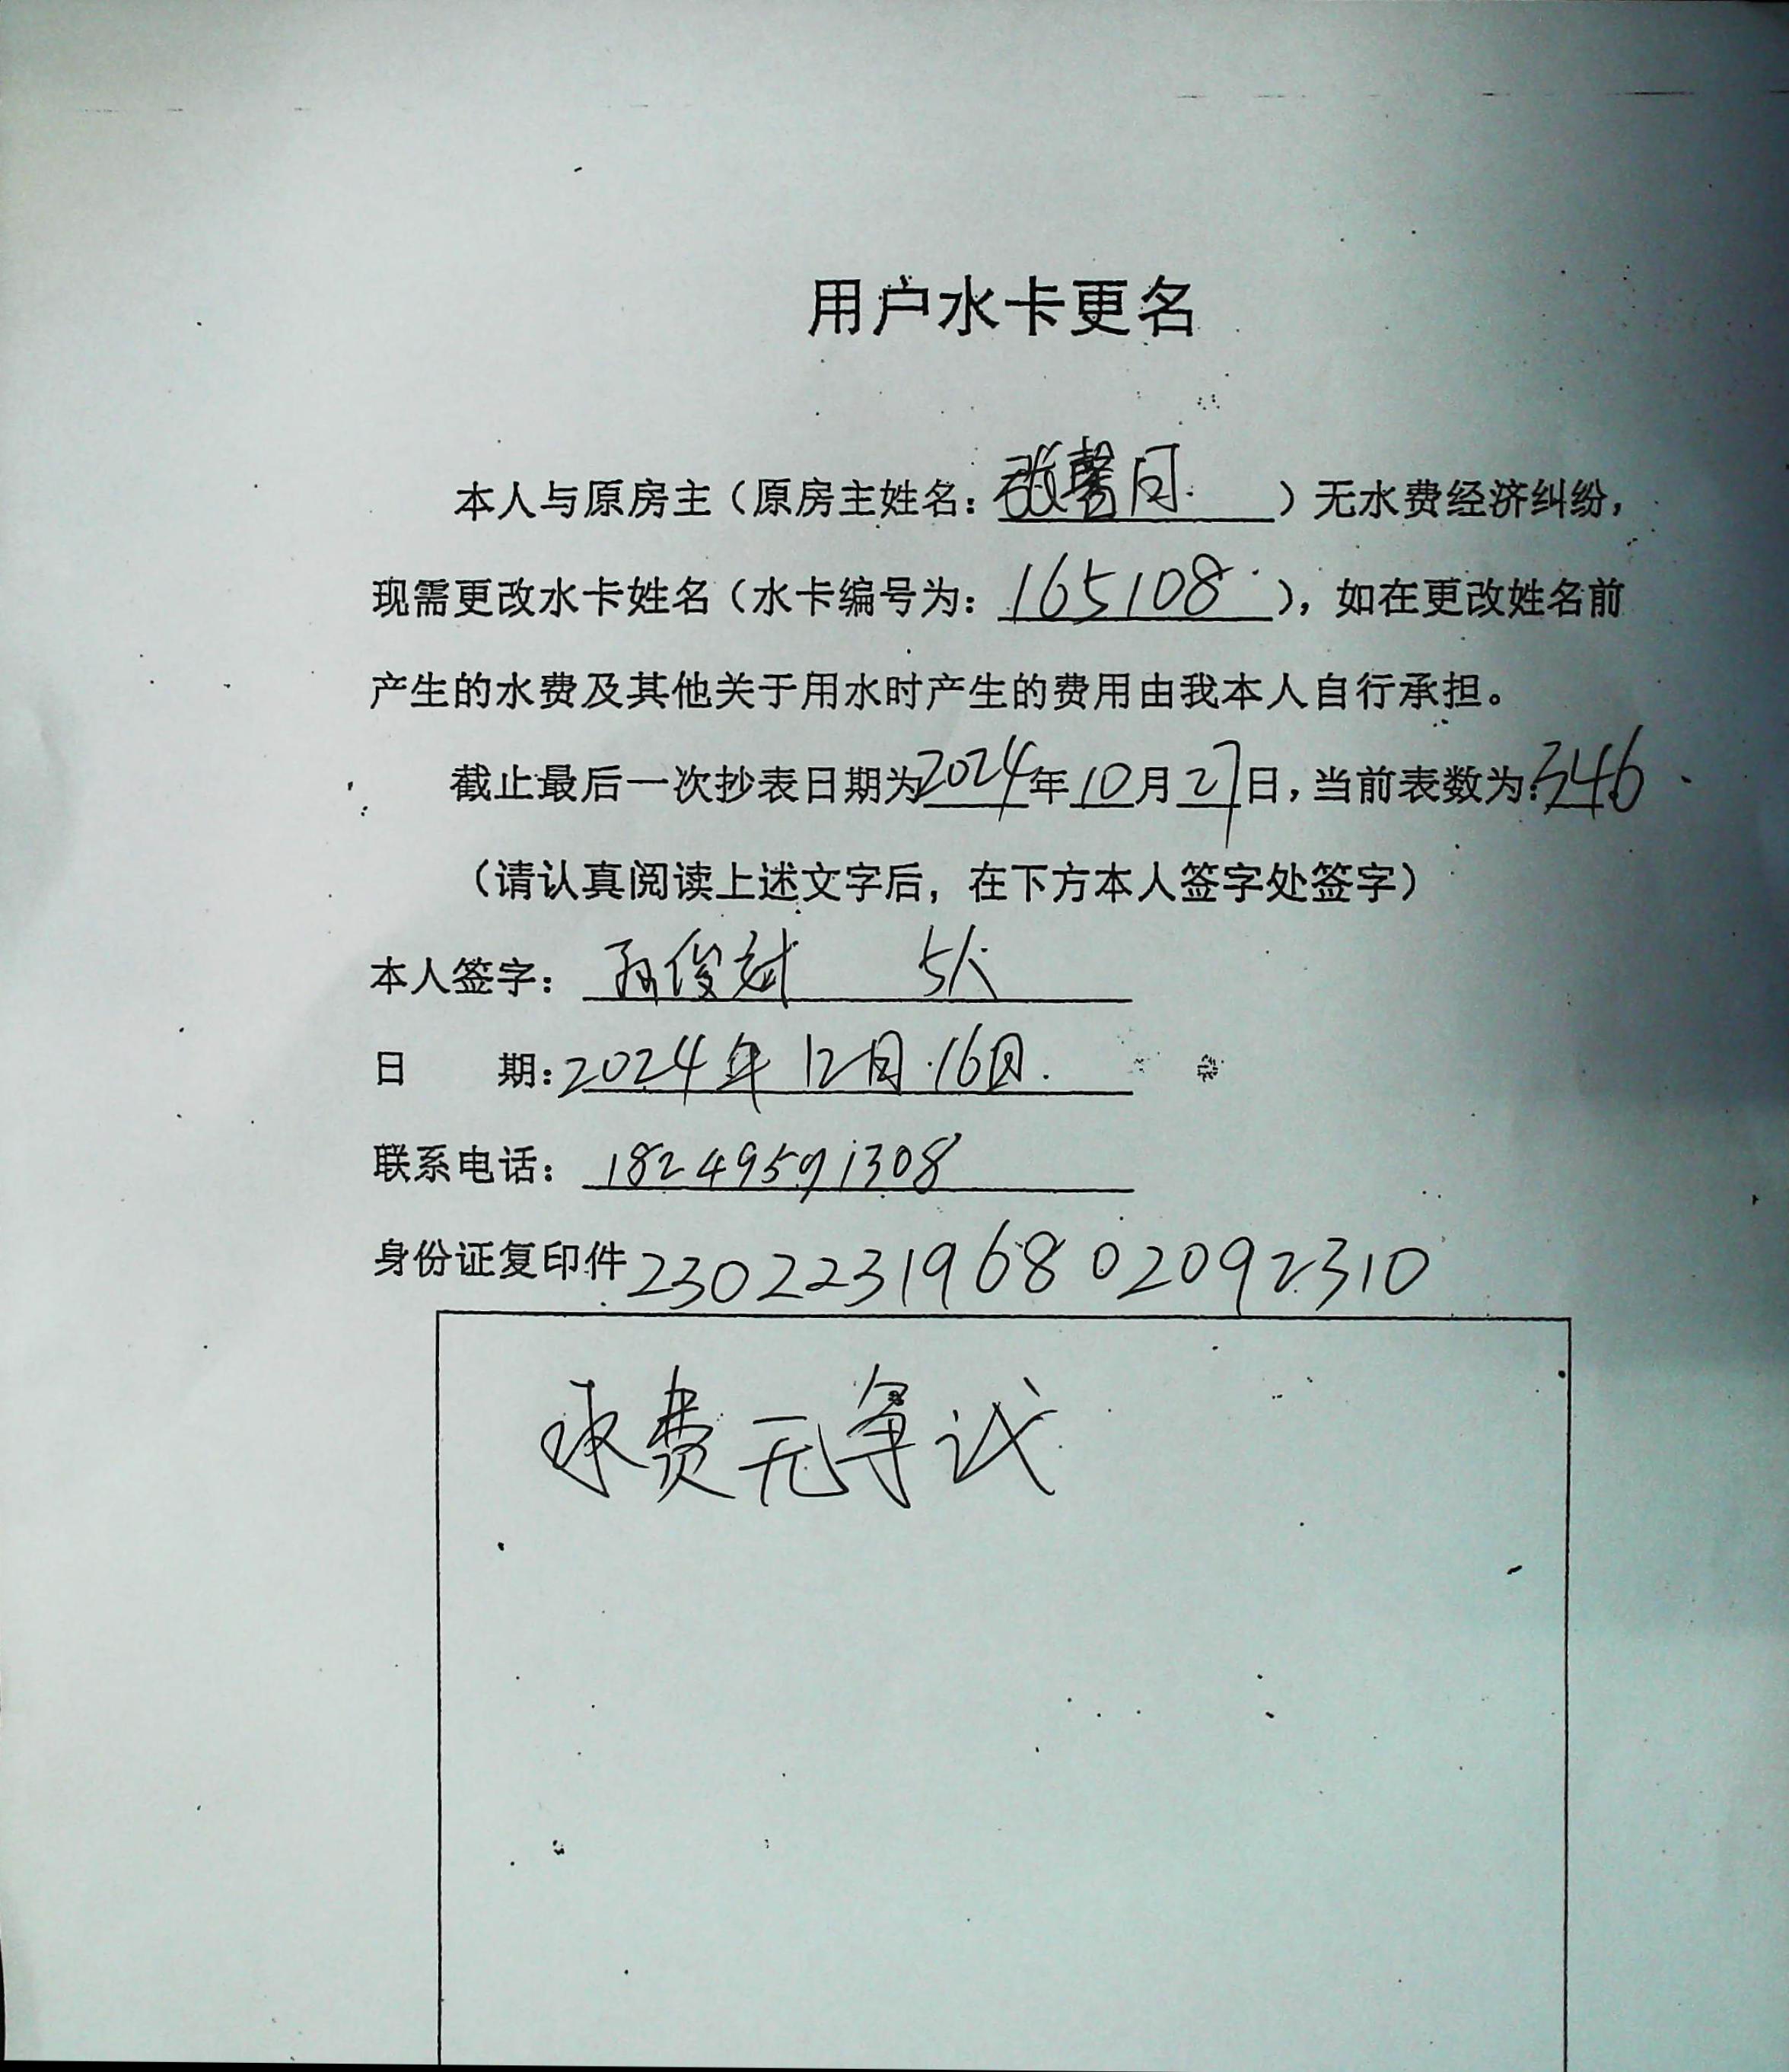 用户水卡更名
本人与原房主（原房主姓名：馨向）无水费经济纠纷，
现需更改水卡姓名（水卡编号为：165108），如在更改姓名前
产生的水费及其他关于用水时产生的费用由我本人自行承担。
截止最后一次抄表日期为2024年10月27日，当前表数为：346
（请认真阅读上述文字后，在下方本人签字处签字）
本人签字：孙俊斌 5人
日 期：2024年12月16日.
联系电话：18249591308
身份证复印件230223196802092310
水费无争议